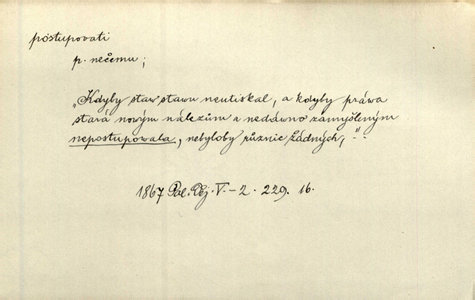 postupovati
p. nečemu;
„Kdyby stav stavu neutiskal, a kdyby práwa
stará novým nálezům a nedáwno zamyšleným
nepostupowala, nebyloby různic žádných, –"
1867 Pal. Děj. V–2. 229. 16.